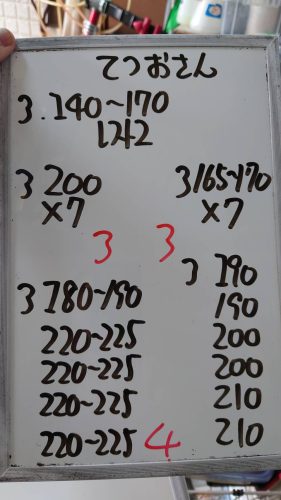 てつおさん
3.140~170
1242
3 200
×7
3 165~170
×7
3
3
3 180~190
220~225
220~225
220~225
220~225
4
3 190
190
200
200
210
210